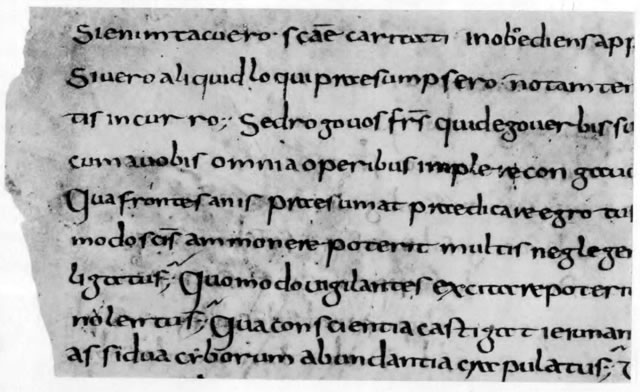 Sienim tacuero · scāe caritati inobediens app
Si uero aliquid loqui praesumpsero · notam te
tis incurro ; Sed rogo uos frs̄ quid ego uerbis su
cum a uobis omnia operibus implere congau
Qua fronte sanis praesumat praedicare egrotus
modo scīs ammonere poterit multis neglege
ligatus ; Quomodo uigilantes excitare poterit
nolentus ; Qua conscientia castigat ieiunan
assidua ciborum abundantia crapulatus ;